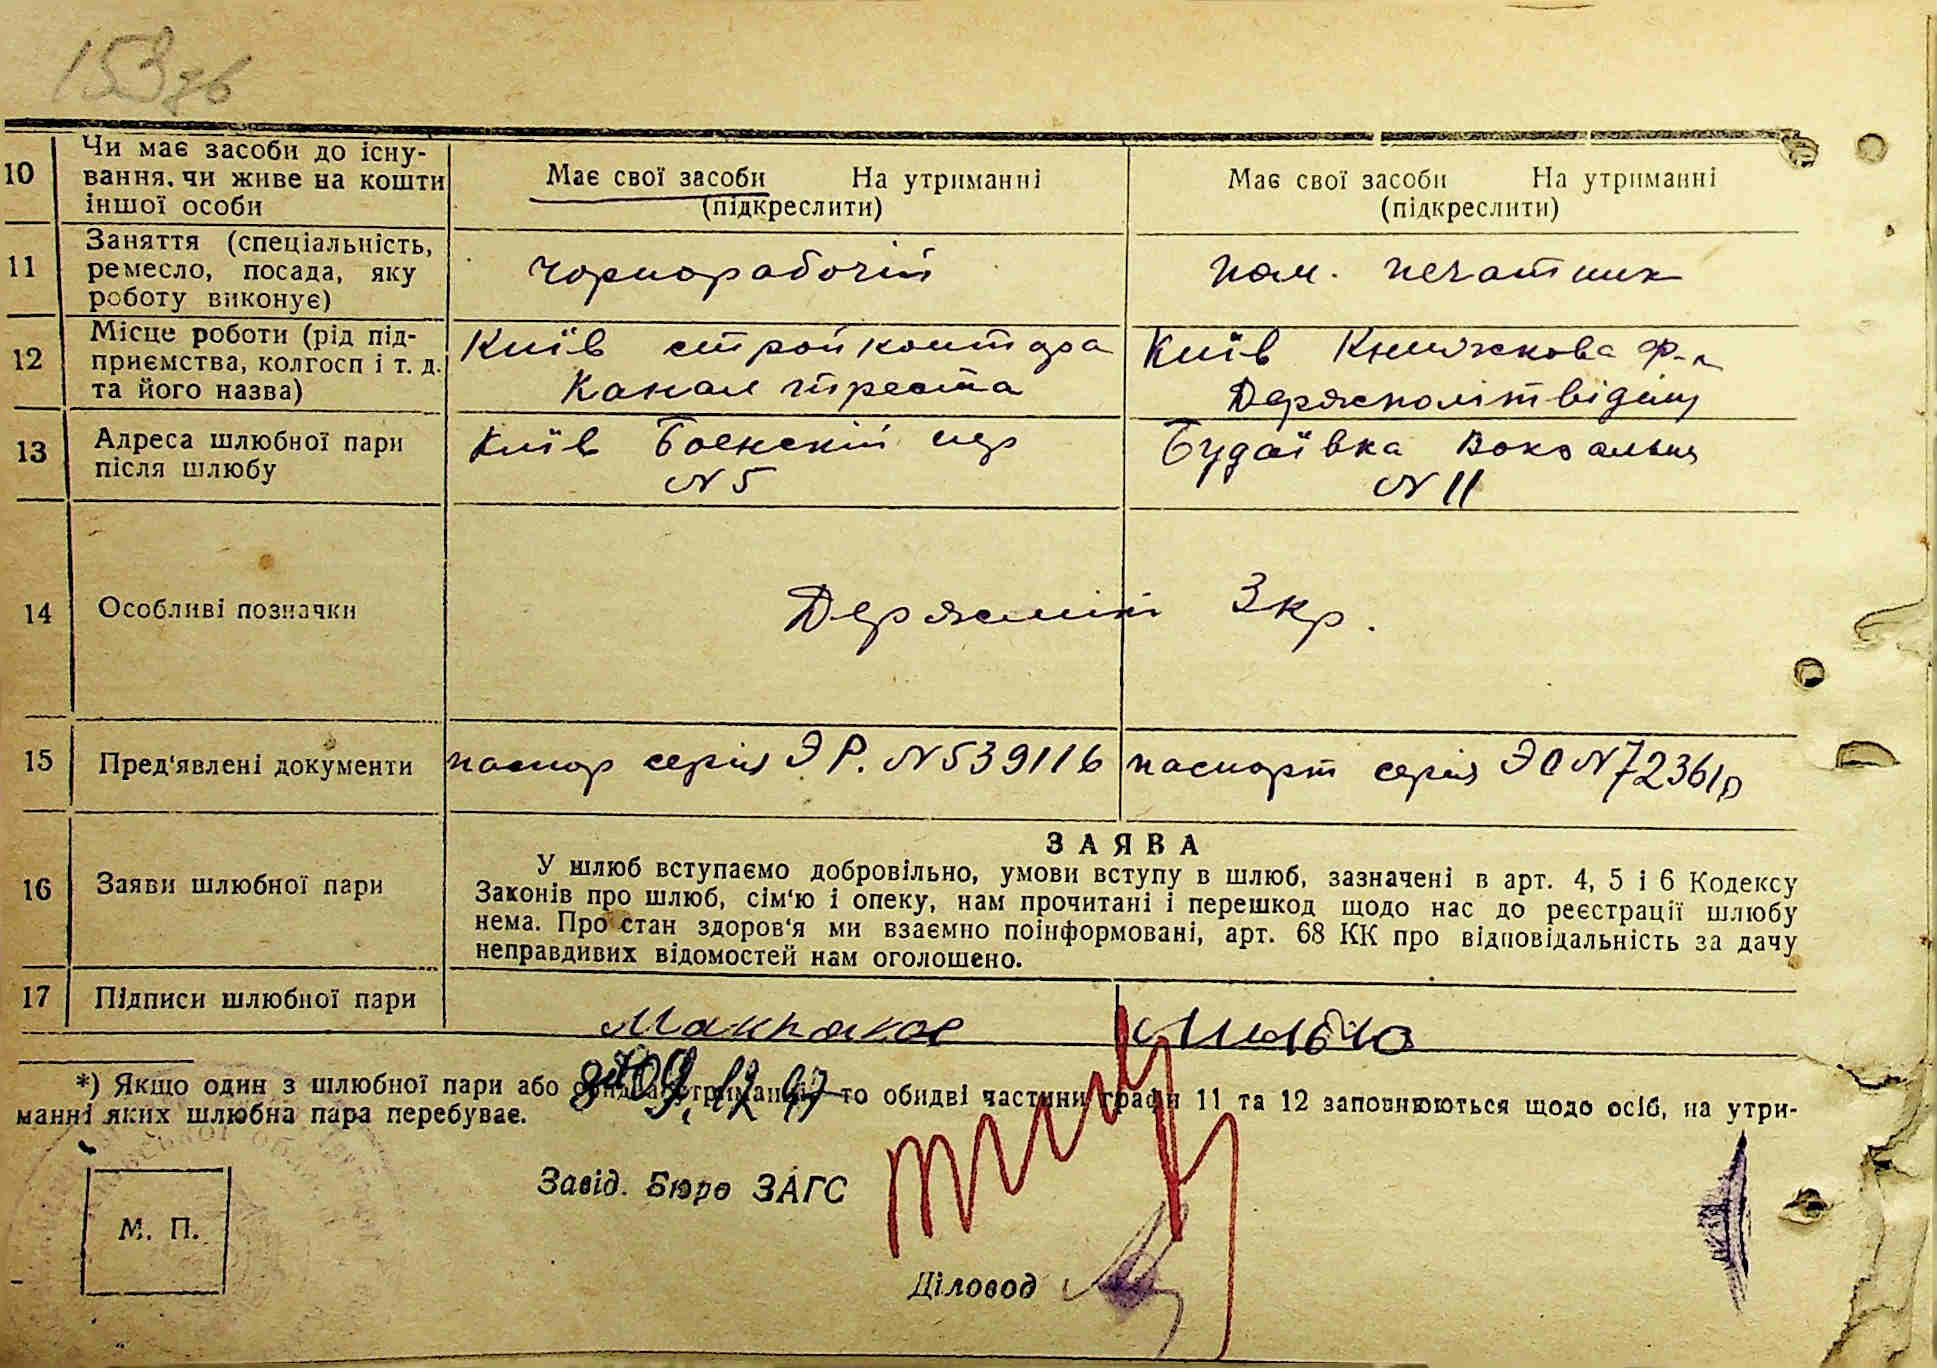 153 зв
10 Чи має засоби до існу-
вання, чи живе на кошти
іншої особи
Має свої засоби На утриманні
(підкреслити)
Має свої засоби На утриманні
(підкреслити)
11 Заняття (спеціальність,
ремесло, посада, яку
роботу виконує)
чорнорабочій
пом. печатник
12 Місце роботи (рід під-
приємства, колгосп і т. д.
та його назва)
Київ стройконтора
Канал треста
Київ Книжкова ф-ка
Держполітвидіву
13 Адреса шлюбної пари
після шлюбу
Київ Боенскій пер
№ 5
Будаївка Вокзальна
№ 11
14 Особливі позначки
Держмит 3 кр.
15 Пред'явлені документи
паспор серія ЭР. №539116
паспорт серія ЭО №72361
16 Заяви шлюбної пари
ЗАЯВА
У шлюб вступаємо добровільно, умови вступу в шлюб, зазначені в арт. 4, 5 і 6 Кодексу
Законів про шлюб, сім'ю і опеку, нам прочитані і перешкод щодо нас до реєстрації шлюбу
нема. Про стан здоров'я ми взаємно поінформовані, арт. 68 КК про відповідальність за дачу
неправдивих відомостей нам оголошено.
17 Підписи шлюбної пари
*) Якщо один з шлюбної пари або то обидві частини графи 11 та 12 заповнюються щодо осіб, на утри-
манні яких шлюбна пара перебуває.
Завід. Бюро ЗАГС
М. П.
Діловод